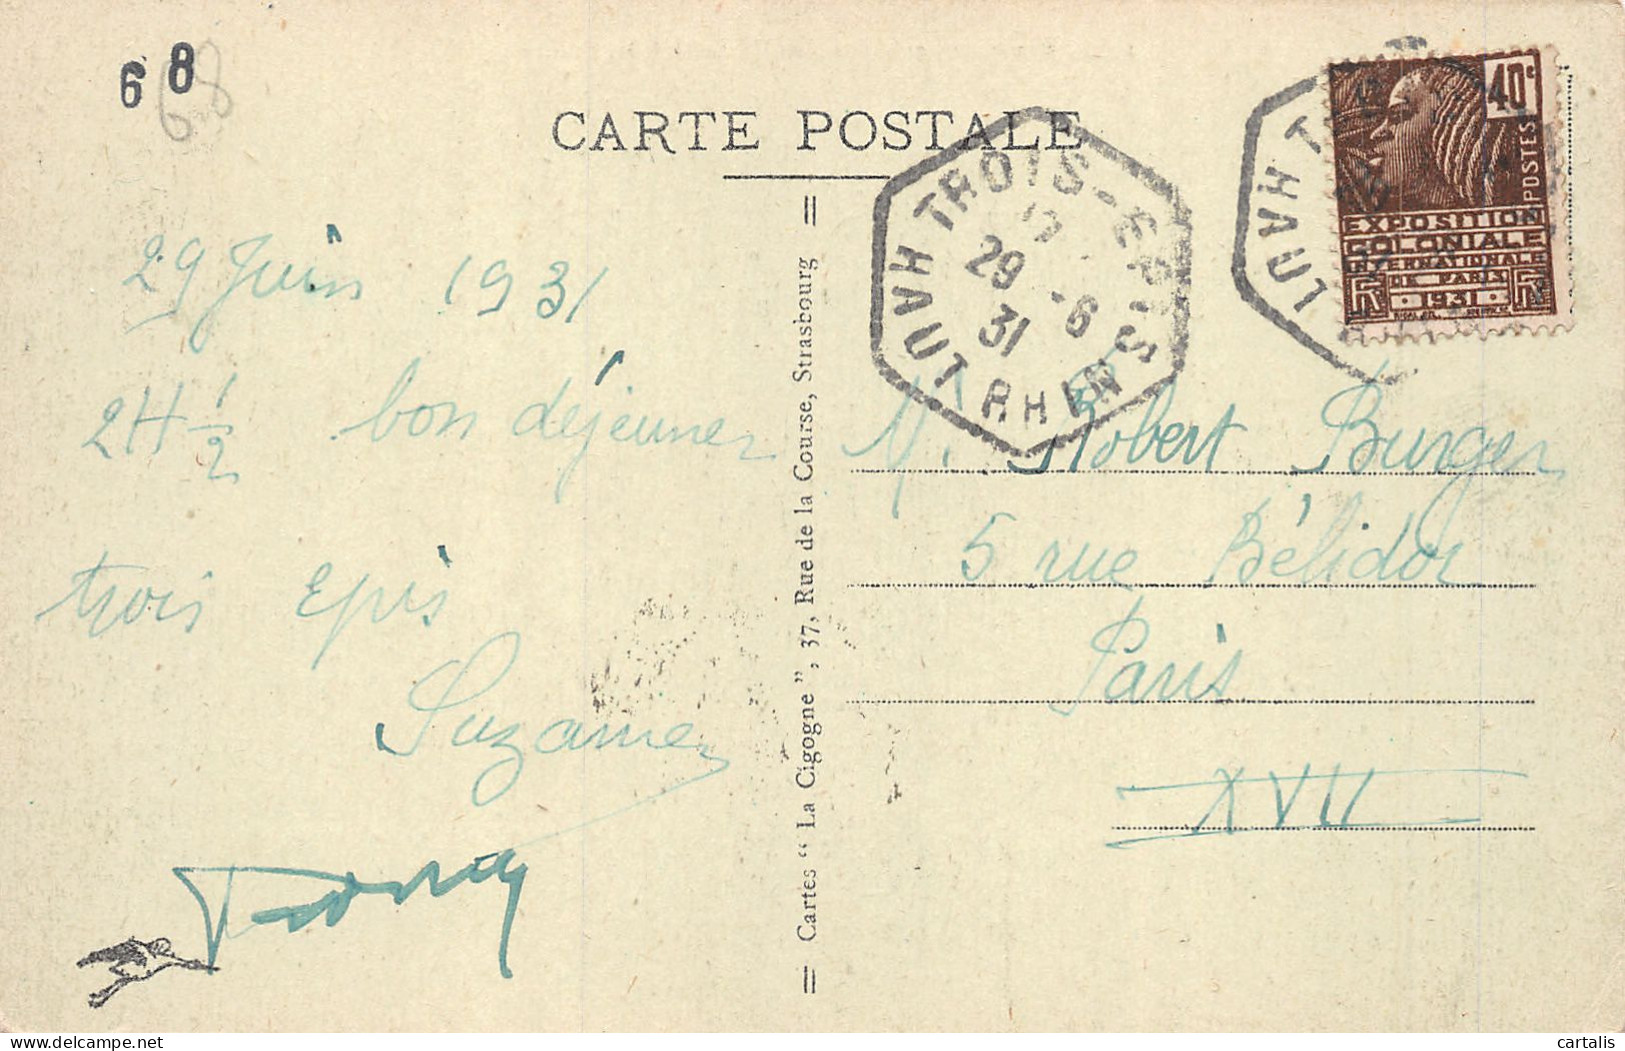 6 8
68
CARTE POSTALE
29 Juin 1931
2H 1/2 bon déjeuner
trois Epis
Suzanne
= Cartes “ La Cigogne ”, 37, Rue de la Course, Strasbourg =
TROIS-EPIS
29 -6
31
HAUT RHIN
40c
POSTES
EXPOSITION
COLONIALE
INTERNATIONALE
DE PARIS
1931
M. Robert Burger
5 rue Bélidor
Paris
XVII
cartalis